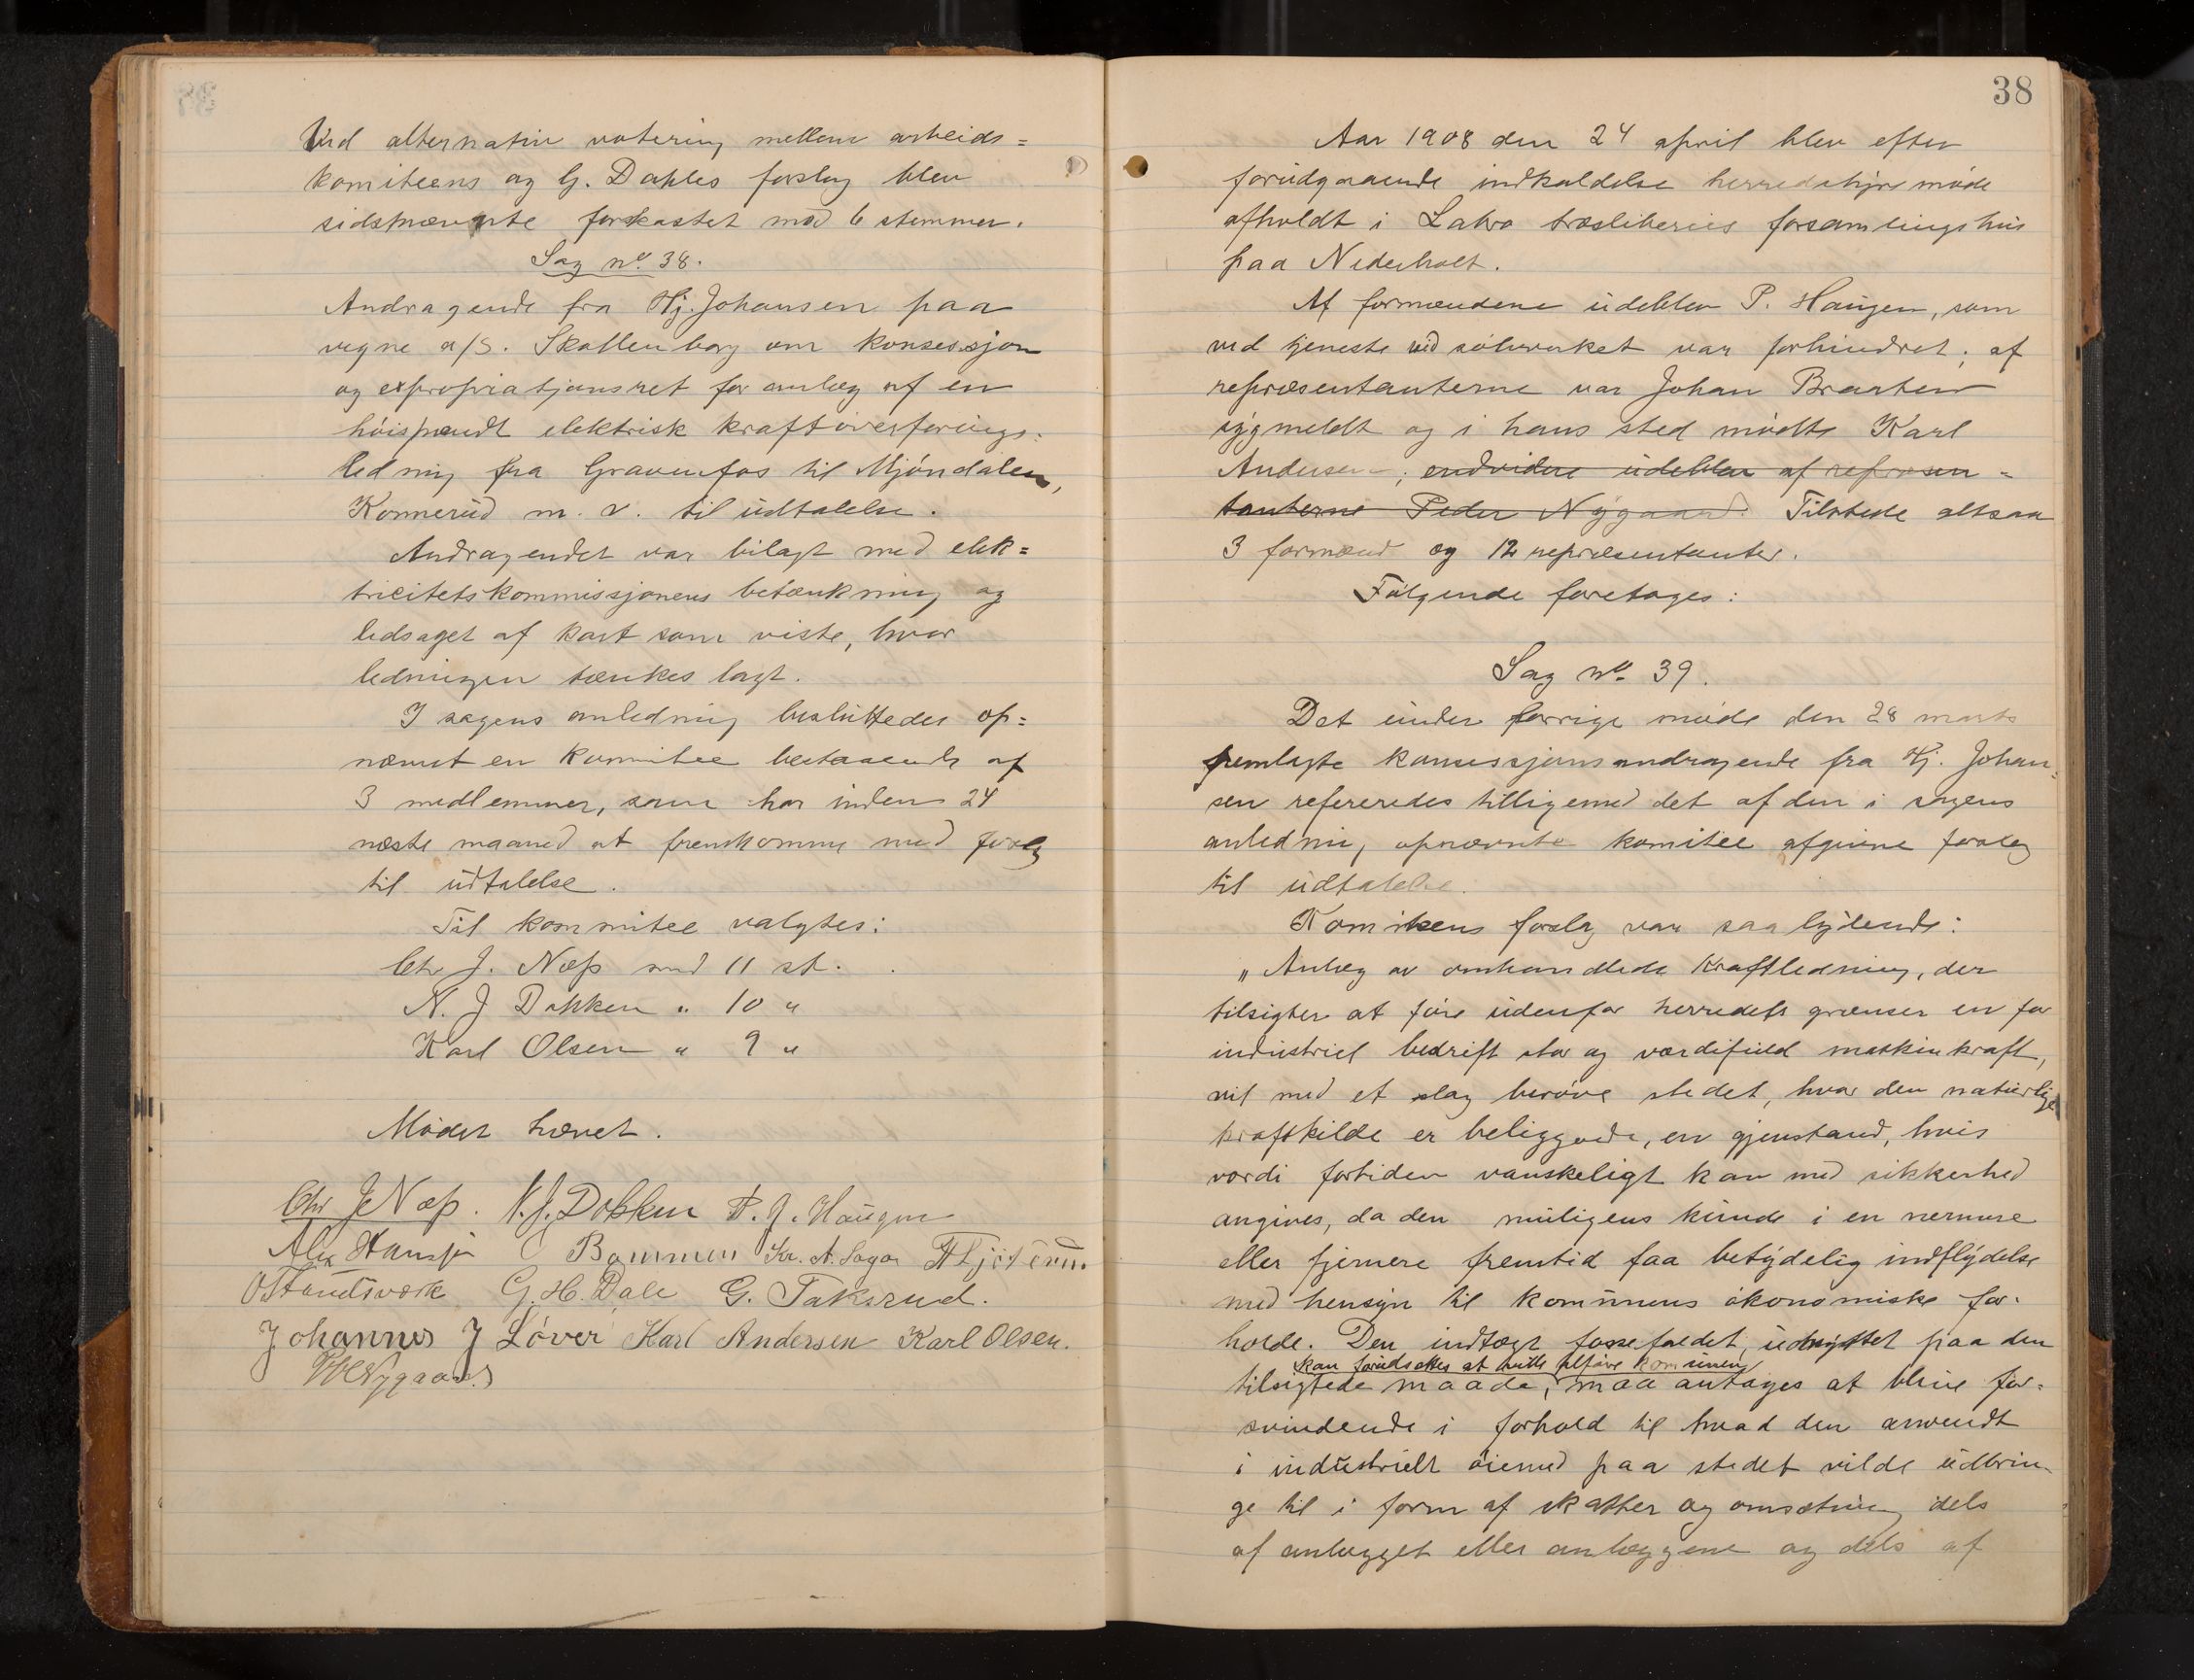 Ved alternativ votering mellem arbeids=
komiteens og G. Dahles forslag blev
sidstnævnte forkastet mod 6 stemmer.
Sag nº 38.
Andragende fra Hj. Johansen paa
vegne a/s. Skollenborg om konsessjon
og expropriatjonsret for anlæg af en
høispændt elektrisk kraftoverførings=
ledning fra Gravenfos til Mjøndalen,
Konnerud m. v. til udtalelse.
Andragendet var bilagt med elek=
tricitetskommissjonens betænkning og
ledsaget af kart som viste, hvor
ledningen tænkes lagt.
I sagens anledning besluttedes op=
nævnt en komitee bestaaende af
3 medlemmer, som har inden 24
næste maaned at fremkomme med forslag
til udtalelse.
Til kommitee valgtes:
Chr J. Næss med 11 st.
N. J Dokken " 10 "
Karl Olsen " 9 "
Mødet hævet.
Chr J Næss. N. J. Dokken P. J. Haugen
Alex Hansen O Bommen Kr. A. Saga
O Strandsværk G. H. Dale G. Taksrud.
Johannes J Løver Karl Andersen Karl Olsen.
Nygaard
38
Aar 1908 den 24 april blev efter
forudgaaende indkaldelse herredstyremøde
afholdt i Labro træsliberies forsamlingshus
paa Nederholt.
Af formændene udeblev P. Haugen, som
ved tjeneste ved sølvverket var forhindret; af
repræsentanterne var Johan Braaten
sygmeldt og i hans sted mødte Karl
Andersen; endvidere udeblev af repræsen=
tanterne Peder Nygaard. Tilstede altsaa
3 formænd og 12 repræsentanter.
Følgende foretoges:
Sag nº 39.
Det under forrige møde den 28 marts
fremlagte konsessjonsandragende fra Hj. Johan=
sen refereredes tilligemed det af den i sagens
anledning opnævnte komitee afgivne forslag
til udtalelse.
Komiteens forslag var saalydende:
„Anlæg av omhandlede kraftledning, der
tilsigter at føre udenfor herredets grænser en for
industriel bedrift stor og værdifuld maskinkraft,
vil med et slag berøve stedet, hvor den naturlige
kraftkilde er beliggende, en gjenstand, hvis
værdi fortiden vanskeligt kan med sikkerhed
angives, da den muligens kunde i en nærmere
eller fjernere fremtid faa betydelig indflydelse
med hensyn til kommunens økonomiske for=
holde. Den indtægt fossefaldet, udnyttet paa den
kan forudsættes at ville tilføre kommunen
tilsigtede maade, maa antages at blive for=
svindende i forhold til hvad den anvendt
i industrielt øiemed paa stedet vilde udbrin=
ge til i form af skatter og omsætning dels
af anlægget eller anlæggene og dels af